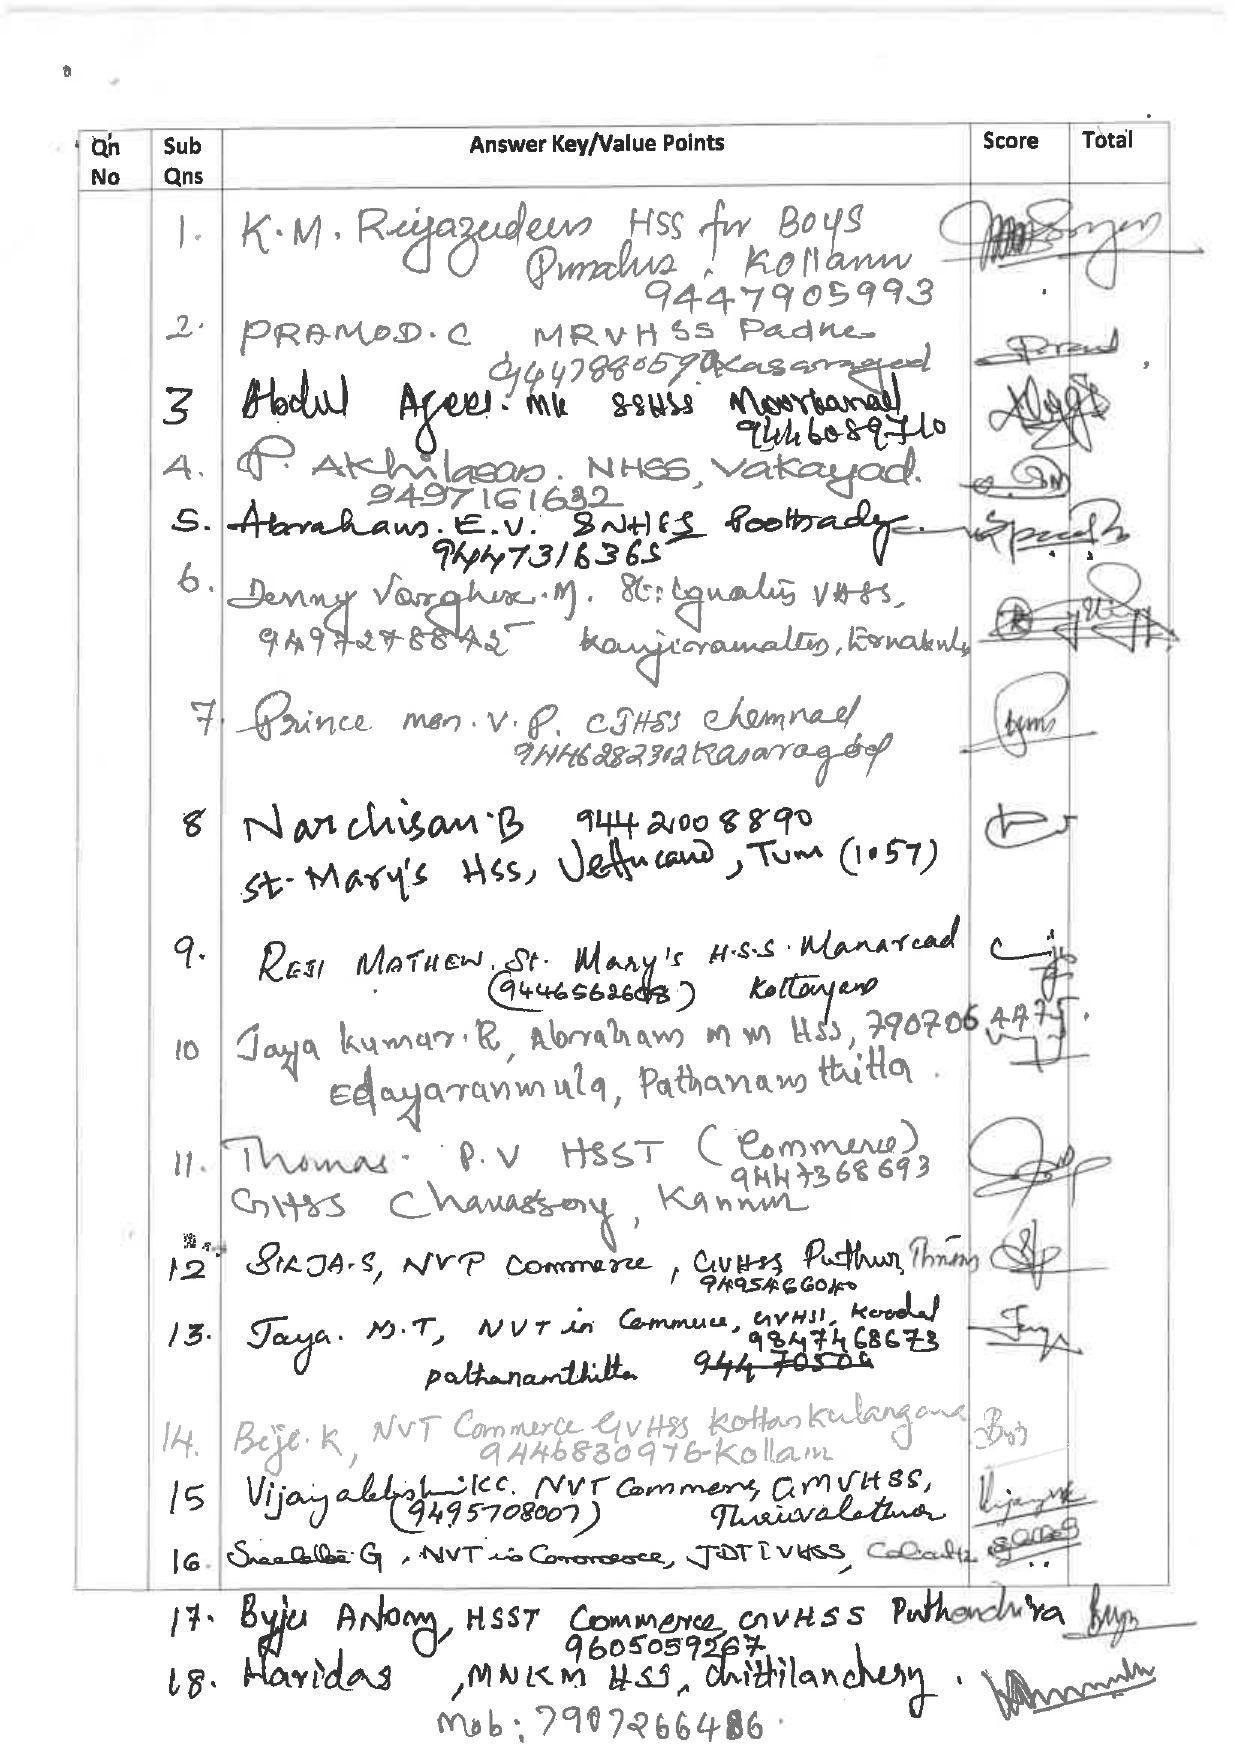 Qn No Sub Qns Answer Key/Value Points Score Total
1. K.M. Riyazudeen HSS for Boys
Punalur, Kollam
9447905993
2. PRAMOD. C MRVHSS Padne
Kasaragod
3 Abdul Azees. MK SSHSS Moorkanad
9446089710
4. P. Akhilasan. NHSS, Vakayad.
9497161632
5. Abraham. E.V. SNHSS Poothady
9447316365
6. Denny Varghese. M. St: Ignatius VHSS,
9497278842 Kanjiramattom, Ernakulam
7. Prince mon. V. P. CJHSS Chemnad
9446282302 Kasaragod
8 Narchison. B 9442008890
St. Mary's HSS, Vettucaud, Tvm (1057)
9. REJI MATHEW, St. Mary's H.S.S. Manarcad
Kottayam
10 Jaya kumar. R, Abraham M M HSS, 7907064475.
Edayaranmula, Pathanamthitta.
11. Thomas. P.V HSST (Commerce)
9447368693
GHSS Chavassery, Kannur
12 SIRJA-S, Commerce, GVHSS Puthur,
13. Jaya. M.T, NVT in Commerce, GVHSS, Koodal
9847468673
pathanamthitta
14. K, NVT Commerce GVHSS Kottankulangara
9446830976-Kollam
15 Vijayalakshmi KC. NVT Commerce, GMVHSS,
(9495708007)
16. G, NVT in Commerce, JDT I VHSS,
17. Byju Antony, HSST Commerce GVHSS
9605059267
18. Haridas, MNKM HSS, Chittilanchery.
Mob: 7907266486.